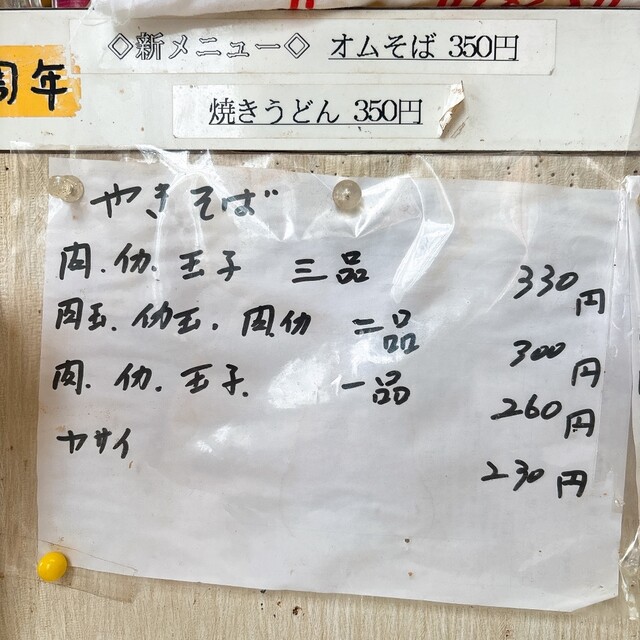 ◇新メニュー◇ オムそば 350円
周年
焼きうどん 350円
やきそば
肉.イカ.玉子 三品 330円
肉玉.イカ玉.肉イカ 二品 300円
肉.イカ.玉子. 一品 260円
ヤサイ 230円